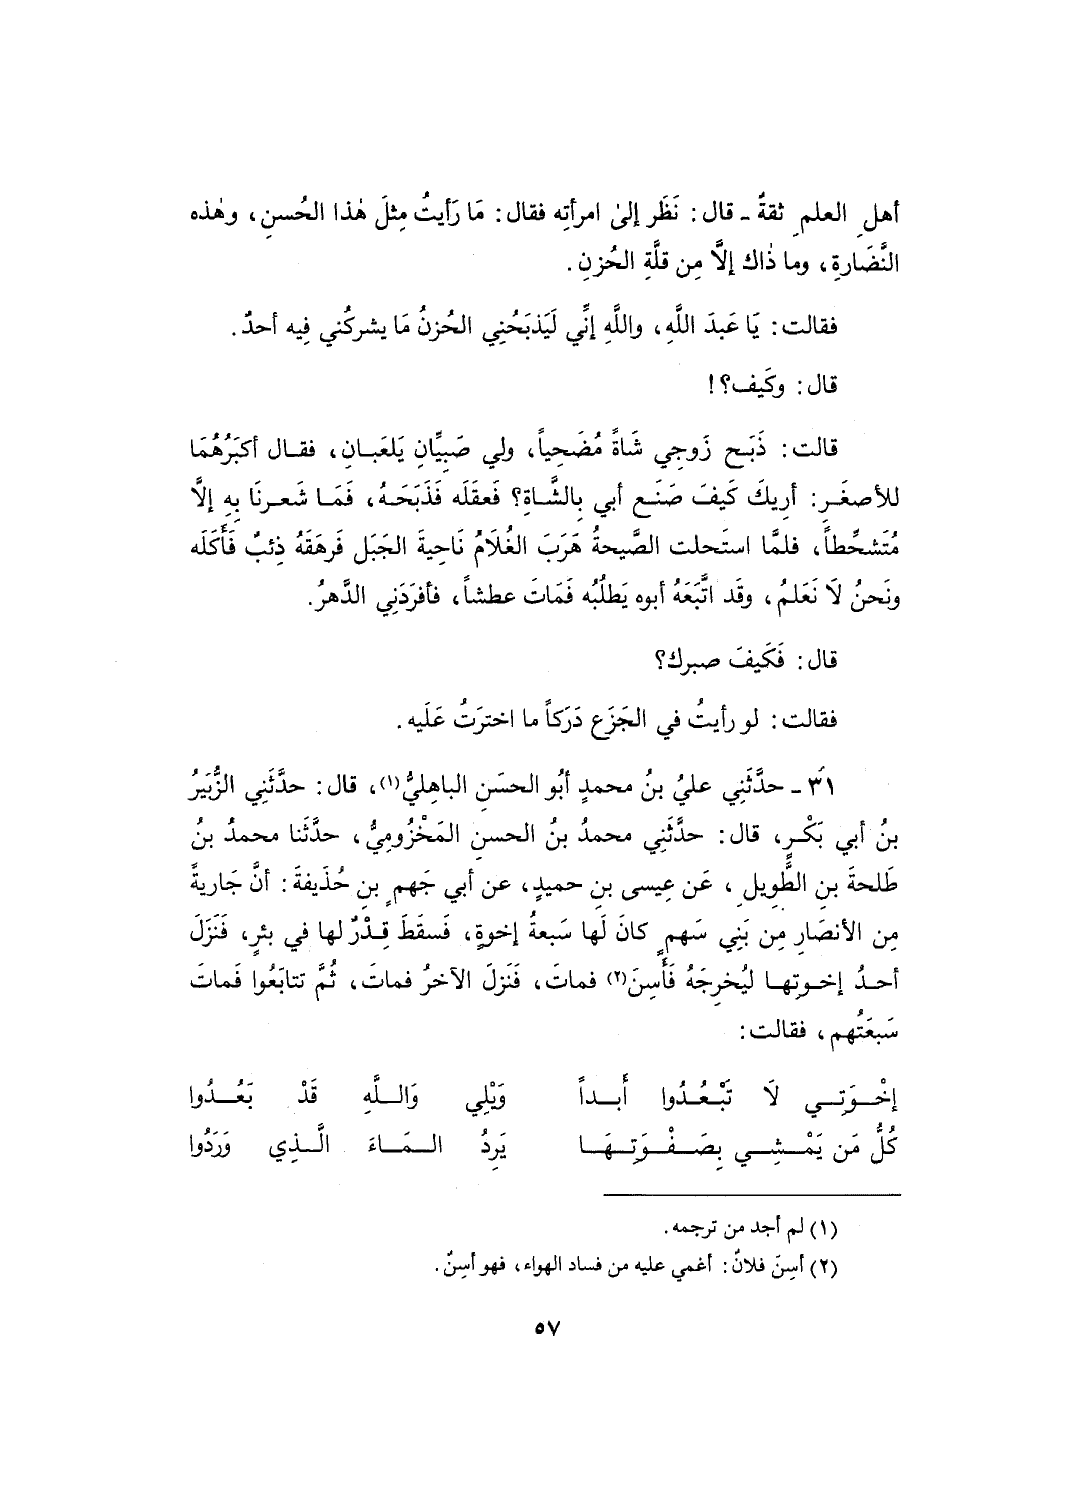 أهلِ العلمِ ثقةٌ ـ قال: نَظَر إلىٰ امرأتِه فقال: مَا رَأيتُ مِثلَ هٰذا الحُسنِ، وهٰذه
النَّضَارةِ، وما ذٰاك إلَّا مِن قلَّةِ الحُزنِ.
فقالت: يَا عَبدَ اللَّهِ، واللَّهِ إنِّي لَيَذبَحُنِي الحُزنُ مَا يشركُني فِيه أحدٌ.
قال: وكَيف؟!
قالت: ذَبَح زَوجِي شَاةً مُضَحِياً، ولي صَبِيَّانِ يَلعَبـانِ، فقـال أكبَرُهُمَا
للأصغَرِ: أرِيكَ كَيفَ صَنَع أبي بِالشَّاةِ؟ فَعقَلَه فَذَبَحَـهُ، فَمَـا شَعـرنَا بِهِ إلَّا
مُتَشحِّطاً، فلمَّا استَحلت الصَّيحةُ هَرَبَ الغُلَامُ نَاحِيةَ الجَبَل فَرهَقَهُ ذِئبٌ فَأَكَلَه
ونَحنُ لَا نَعَلمُ، وقَد اتَّبَعَهُ أبوه يَطلُبُه فَمَاتَ عطشاً، فأفرَدَنِي الدَّهرُ.
قال: فَكَيفَ صبرك؟
فقالت: لو رأيتُ في الجَزَع دَرَكاً ما اخترَتُ عَلَيه.
٣١ ـ حدَّثَنِي عليُ بنُ محمدٍ أبُو الحسَنِ الباهِليُّ(١)، قال: حدَّثَنِي الزُّبَيَرُ
بنُ أبي بَكْـرٍ، قال: حدَّثَنِي محمدُ بنُ الحسنِ المَخْزُومِيُّ، حدَّثَنا محمدُ بنُ
طَلحةَ بنِ الطَّوِيلِ، عَن عِيسى بنِ حميدٍ، عن أبي جَهمٍ بنِ حُذَيفةَ: أنَّ جَارِيةً
مِن الأنصَارِ مِن بَنِي سَهمٍ كانَ لَها سَبعةُ إخوةٍ، فَسقَطَ قِـدْرٌ لها في بئرٍ، فَنَزَلَ
أحـدُ إخـوتِهـا ليُخرِجَهُ فَأَسِنَ(٢) فماتَ، فَنَزلَ الآخرُ فماتَ، ثُمَّ تتابَعُوا فَماتَ
سَبعَتُهم، فقالت:
إخْـوَتِـي لَا تَبْـعُـدُوا أَبـداً وَيْلِي وَاللَّهِ قَدْ بَعُـدُوا
كُلُّ مَن يَمْـشِـي بِصَـفْـوَتِـهَـا يَرِدُ الـمَـاءَ الَّـذِي وَرَدُوا
(١) لم أجد من ترجمه.
(٢) أسِنَ فلانٌ: أغمي عليه من فساد الهواء، فهو أسِنٌ.
٥٧